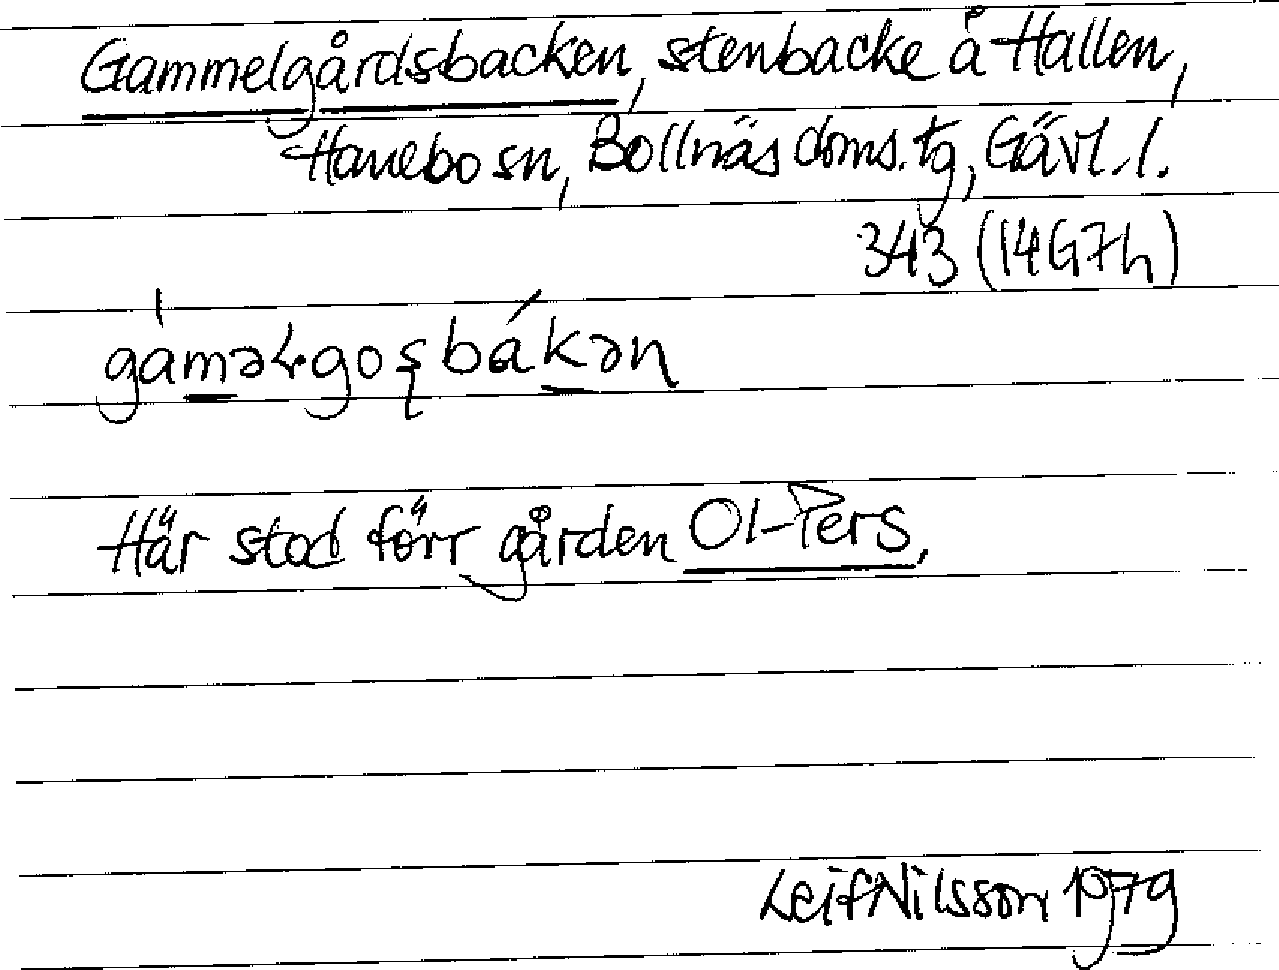 Gammelgårdsbacken, stenbacke å Hallen,
Hanebo sn, Bollnäs doms. tg, Gävl. l.
343 (14G7h)
gáməɫgoʂbákən
Här stod förr gården Ol-Pers.
Leif Nilsson 1979